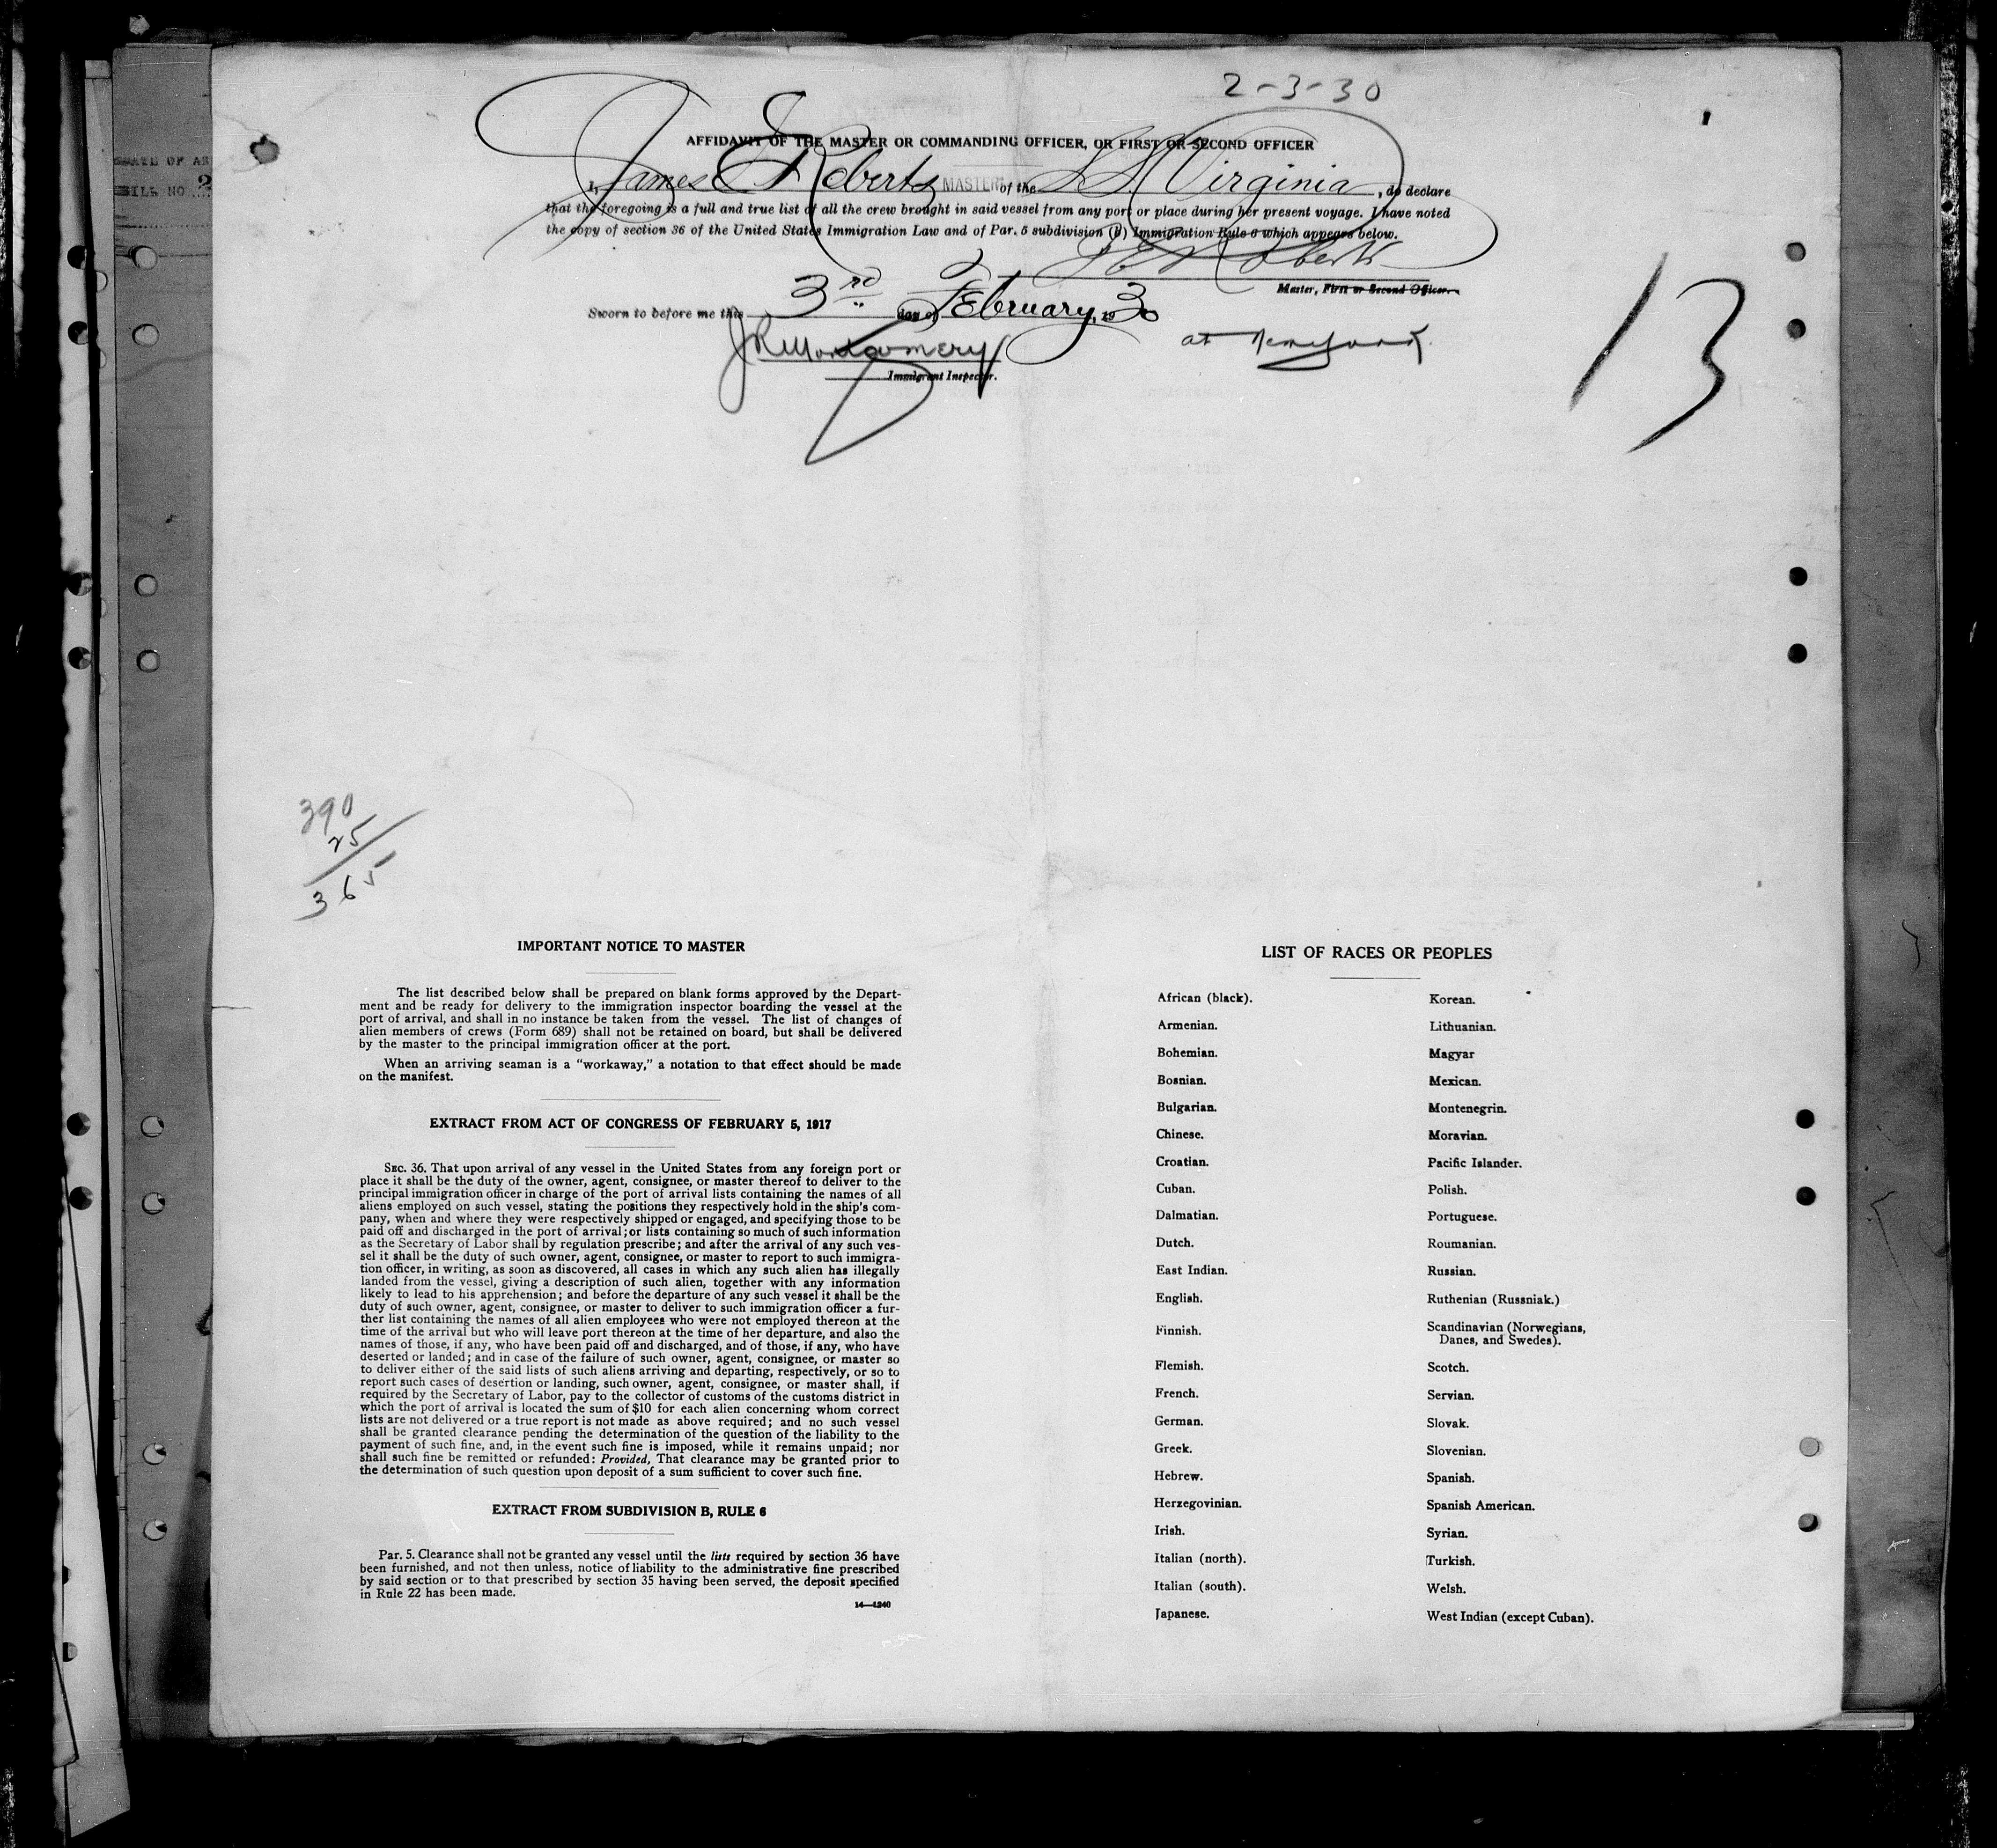 2-3-30
AFFIDAVIT OF THE MASTER OR COMMANDING OFFICER, OR FIRST OR SECOND OFFICER
DATE OF AR
BILL NO.... 2
I, James E Roberts MASTER of the SS Virginia, do declare
that the foregoing is a full and true list of all the crew brought in said vessel from any port or place during her present voyage. I have noted
the copy of section 36 of the United States Immigration Law and of Par. 5 subdivision (b) Immigration Rule 6 which appears below.
J E Roberts
Master, First or Second Officer.
Sworn to before me this 3rd day of February, 1930
at New York.
JR Montgomery
Immigrant Inspector.
13
390
25
365
IMPORTANT NOTICE TO MASTER
The list described below shall be prepared on blank forms approved by the Depart-
ment and be ready for delivery to the immigration inspector boarding the vessel at the
port of arrival, and shall in no instance be taken from the vessel. The list of changes of
alien members of crews (Form 689) shall not be retained on board, but shall be delivered
by the master to the principal immigration officer at the port.
When an arriving seaman is a "workaway," a notation to that effect should be made
on the manifest.
EXTRACT FROM ACT OF CONGRESS OF FEBRUARY 5, 1917
SEC. 36. That upon arrival of any vessel in the United States from any foreign port or
place it shall be the duty of the owner, agent, consignee, or master thereof to deliver to the
principal immigration officer in charge of the port of arrival lists containing the names of all
aliens employed on such vessel, stating the positions they respectively hold in the ship's com-
pany, when and where they were respectively shipped or engaged, and specifying those to be
paid off and discharged in the port of arrival; or lists containing so much of such information
as the Secretary of Labor shall by regulation prescribe; and after the arrival of any such ves-
sel it shall be the duty of such owner, agent, consignee, or master to report to such immigra-
tion officer, in writing, as soon as discovered, all cases in which any such alien has illegally
landed from the vessel, giving a description of such alien, together with any information
likely to lead to his apprehension; and before the departure of any such vessel it shall be the
duty of such owner, agent, consignee, or master to deliver to such immigration officer a fur-
ther list containing the names of all alien employees who were not employed thereon at the
time of the arrival but who will leave port thereon at the time of her departure, and also the
names of those, if any, who have been paid off and discharged, and of those, if any, who have
deserted or landed; and in case of the failure of such owner, agent, consignee, or master so
to deliver either of the said lists of such aliens arriving and departing, respectively, or so to
report such cases of desertion or landing, such owner, agent, consignee, or master shall, if
required by the Secretary of Labor, pay to the collector of customs of the customs district in
which the port of arrival is located the sum of $10 for each alien concerning whom correct
lists are not delivered or a true report is not made as above required; and no such vessel
shall be granted clearance pending the determination of the question of the liability to the
payment of such fine, and, in the event such fine is imposed, while it remains unpaid; nor
shall such fine be remitted or refunded: Provided, That clearance may be granted prior to
the determination of such question upon deposit of a sum sufficient to cover such fine.
EXTRACT FROM SUBDIVISION B, RULE 6
Par. 5. Clearance shall not be granted any vessel until the lists required by section 36 have
been furnished, and not then unless, notice of liability to the administrative fine prescribed
by said section or to that prescribed by section 35 having been served, the deposit specified
in Rule 22 has been made.
14—1240
LIST OF RACES OR PEOPLES
African (black).
Armenian.
Bohemian.
Bosnian.
Bulgarian.
Chinese.
Croatian.
Cuban.
Dalmatian.
Dutch.
East Indian.
English.
Finnish.
Flemish.
French.
German.
Greek.
Hebrew.
Herzegovinian.
Irish.
Italian (north).
Italian (south).
Japanese.
Korean.
Lithuanian.
Magyar
Mexican.
Montenegrin.
Moravian.
Pacific Islander.
Polish.
Portuguese.
Roumanian.
Russian.
Ruthenian (Russniak.)
Scandinavian (Norwegians,
Danes, and Swedes).
Scotch.
Servian.
Slovak.
Slovenian.
Spanish.
Spanish American.
Syrian.
Turkish.
Welsh.
West Indian (except Cuban).